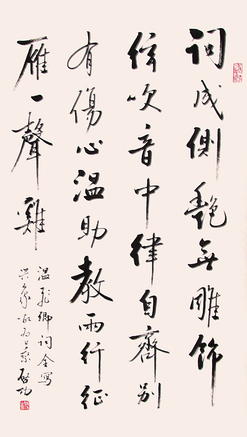 詞成側艷無雕飾
倚吹音中律自齊別
有傷心溫助教兩行征
雁一聲雞
溫飛卿詞全寫
景象 啟功